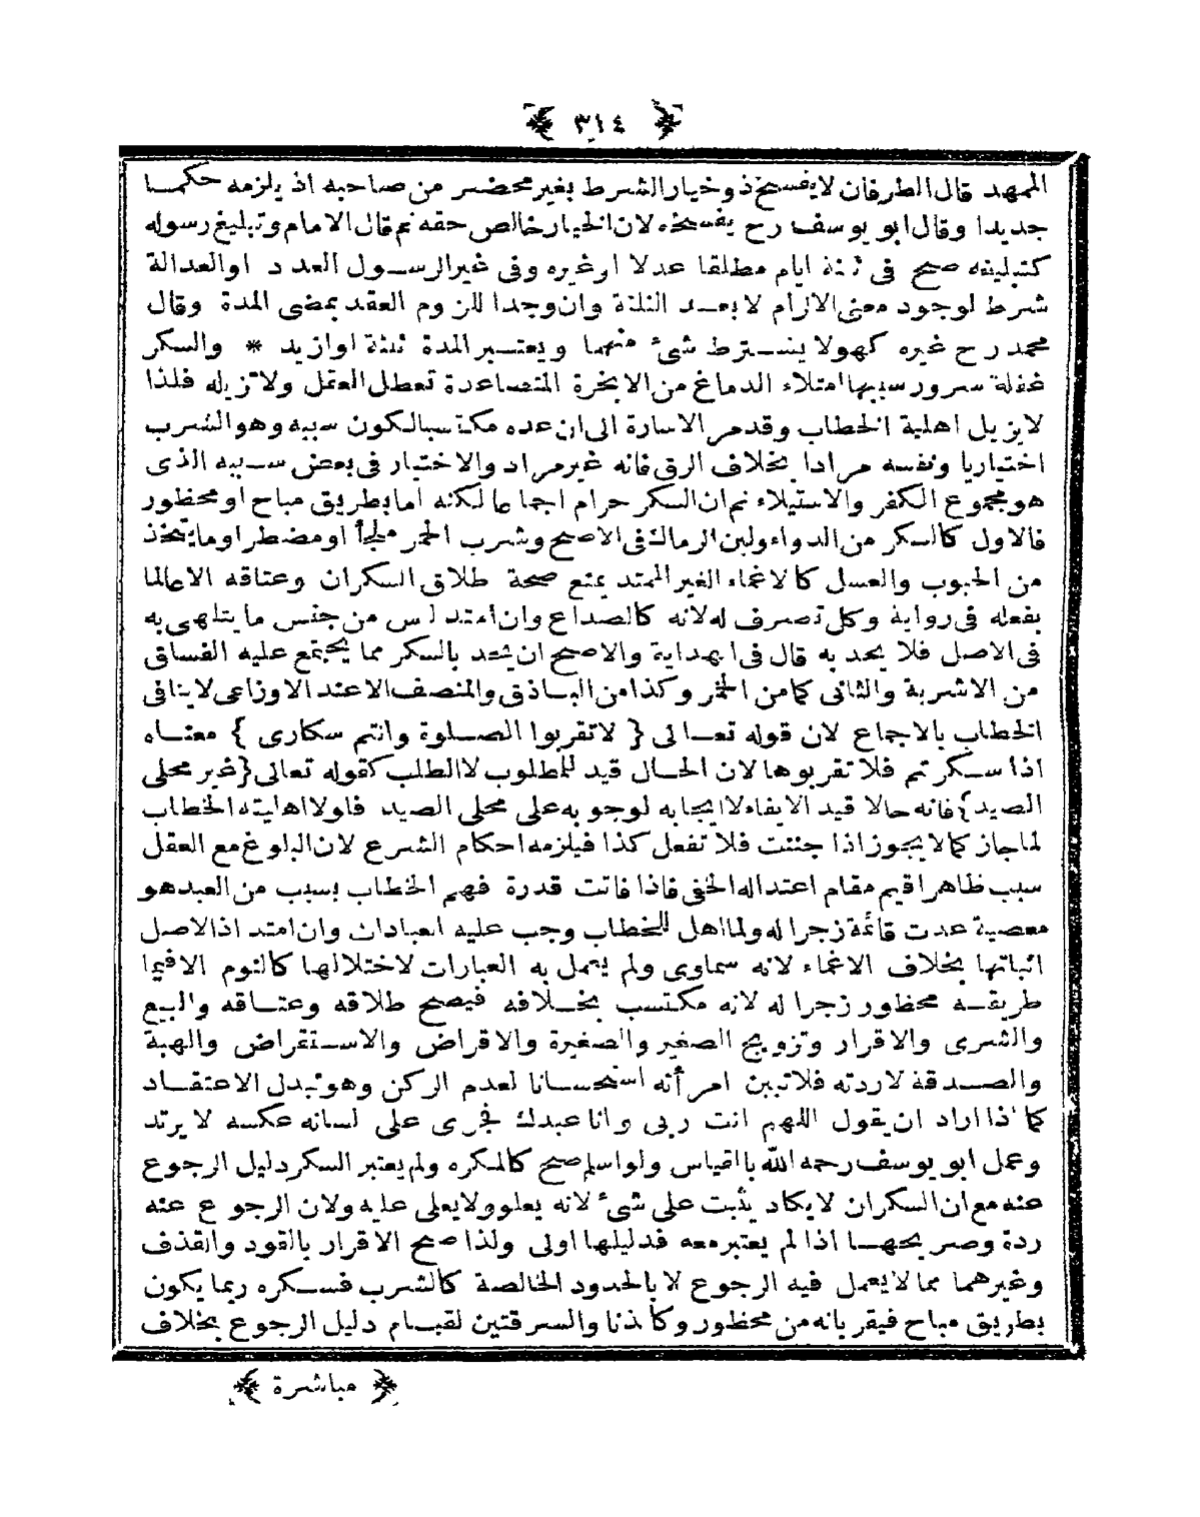 ﴿ ٣١٤ ﴾
الممهد قال الطرفان لا يفسخ ذو خيار الشرط بغير محضر من صاحبه اذ يلزمه حكما
جديدا وقال ابو يوسف رح يفسخه لان الخيار خالص حقه ثم قال الامام وتبليغ رسوله
كتبليغه صحيح فى ثلثة ايام مطلقا عدلا او غيره وفى غير الرسول العدد او العدالة
شرط لوجود معنى الالزام لا بعد الثلثة وان وجدا للزوم العقد بمضى المدة وقال
محمد رح غيره كهو لا يشترط شئ منهما ويعتبر المدة ثلثة او ازيد * والسكر
غفلة سرور سببها امتلاء الدماغ من الابخرة المتصاعدة تعطل العقل ولا تزيله فلذا
لا يزيل اهلية الخطاب وقد مر الاشارة الى ان عده مكتسبا لكون سببه وهو الشرب
اختياريا ونفسه مرادا بخلاف الرق فانه غير مراد والاختيار فى بعض سببه الذى
هو مجموع الكفر والاستيلاء ثم ان السكر حرام اجماعا لكنه اما بطريق مباح او محظور
فالاول كالسكر من الدواء ولبن الرماك فى الاصح وشرب الخمر ملجأ او مضطر او ما يتخذ
من الحبوب والعسل كالاغماء الغير الممتد يمنع صحة طلاق السكران وعتاقه الا عالما
بفعله فى رواية وكل تصرف له لانه كالصداع وان امتد ليس من جنس ما يتلهى به
فى الاصل فلا يحد به قال فى الهداية والاصح ان يحد بالسكر مما يجتمع عليه الفساق
من الاشربة والثانى كما من الخمر وكذا من الباذق والمنصف الا عند الاوزاعى لا ينافى
الخطاب بالاجماع لان قوله تعالى { لا تقربوا الصلوة وانتم سكارى } معناه
اذا سكرتم فلا تقربوها لان الحال قيد للمطلوب لا الطلب كقوله تعالى {غير محلى
الصيد} فانه حالا قيد الايفاء لا ايجابه لوجوبه على محلى الصيد فلولا اهليته الخطاب
لما جاز كما لا يجوز اذا جننت فلا تفعل كذا فيلزمه احكام الشرع لان البلوغ مع العقل
سبب ظاهر اقيم مقام اعتداله الخفى فاذا فاتت قدرة فهم الخطاب بسبب من العبد هو
معصية عدت قائمة زجرا له ولما اهل للخطاب وجب عليه العبادات وان امتد اذ الاصل
اثباتها بخلاف الاغماء لانه سماوى ولم يعمل به العبارات لاختلالها كالنوم الا فيما
طريقه محظور زجرا له لانه مكتسب بخلافه فيصح طلاقه وعتاقه والبيع
والشرى والاقرار وتزويج الصغير والصغيرة والاقراض والاستقراض والهبة
والصدقة لا ردته فلا تبين امرأته استحسانا لعدم الركن وهو تبدل الاعتقاد
كما اذا اراد ان يقول اللهم انت ربى وانا عبدك فجرى على لسانه عكسه لا يرتد
وعمل ابو يوسف رحمه الله بالقياس ولو اسلم صح كالمكره ولم يعتبر السكر دليل الرجوع
عنه مع ان السكران لا يكاد يثبت على شئ لانه يعلو ولا يعلى عليه ولان الرجوع عنه
ردة وصريحها اذا لم يعتبر معه فدليلها اولى ولذا صح الاقرار بالقود والقذف
وغيرهما مما لا يعمل فيه الرجوع لا بالحدود الخالصة كالشرب فسكره ربما يكون
بطريق مباح فيقر بانه من محظور وكالزنا والسرقتين لقيام دليل الرجوع بخلاف
﴿ مباشرة ﴾